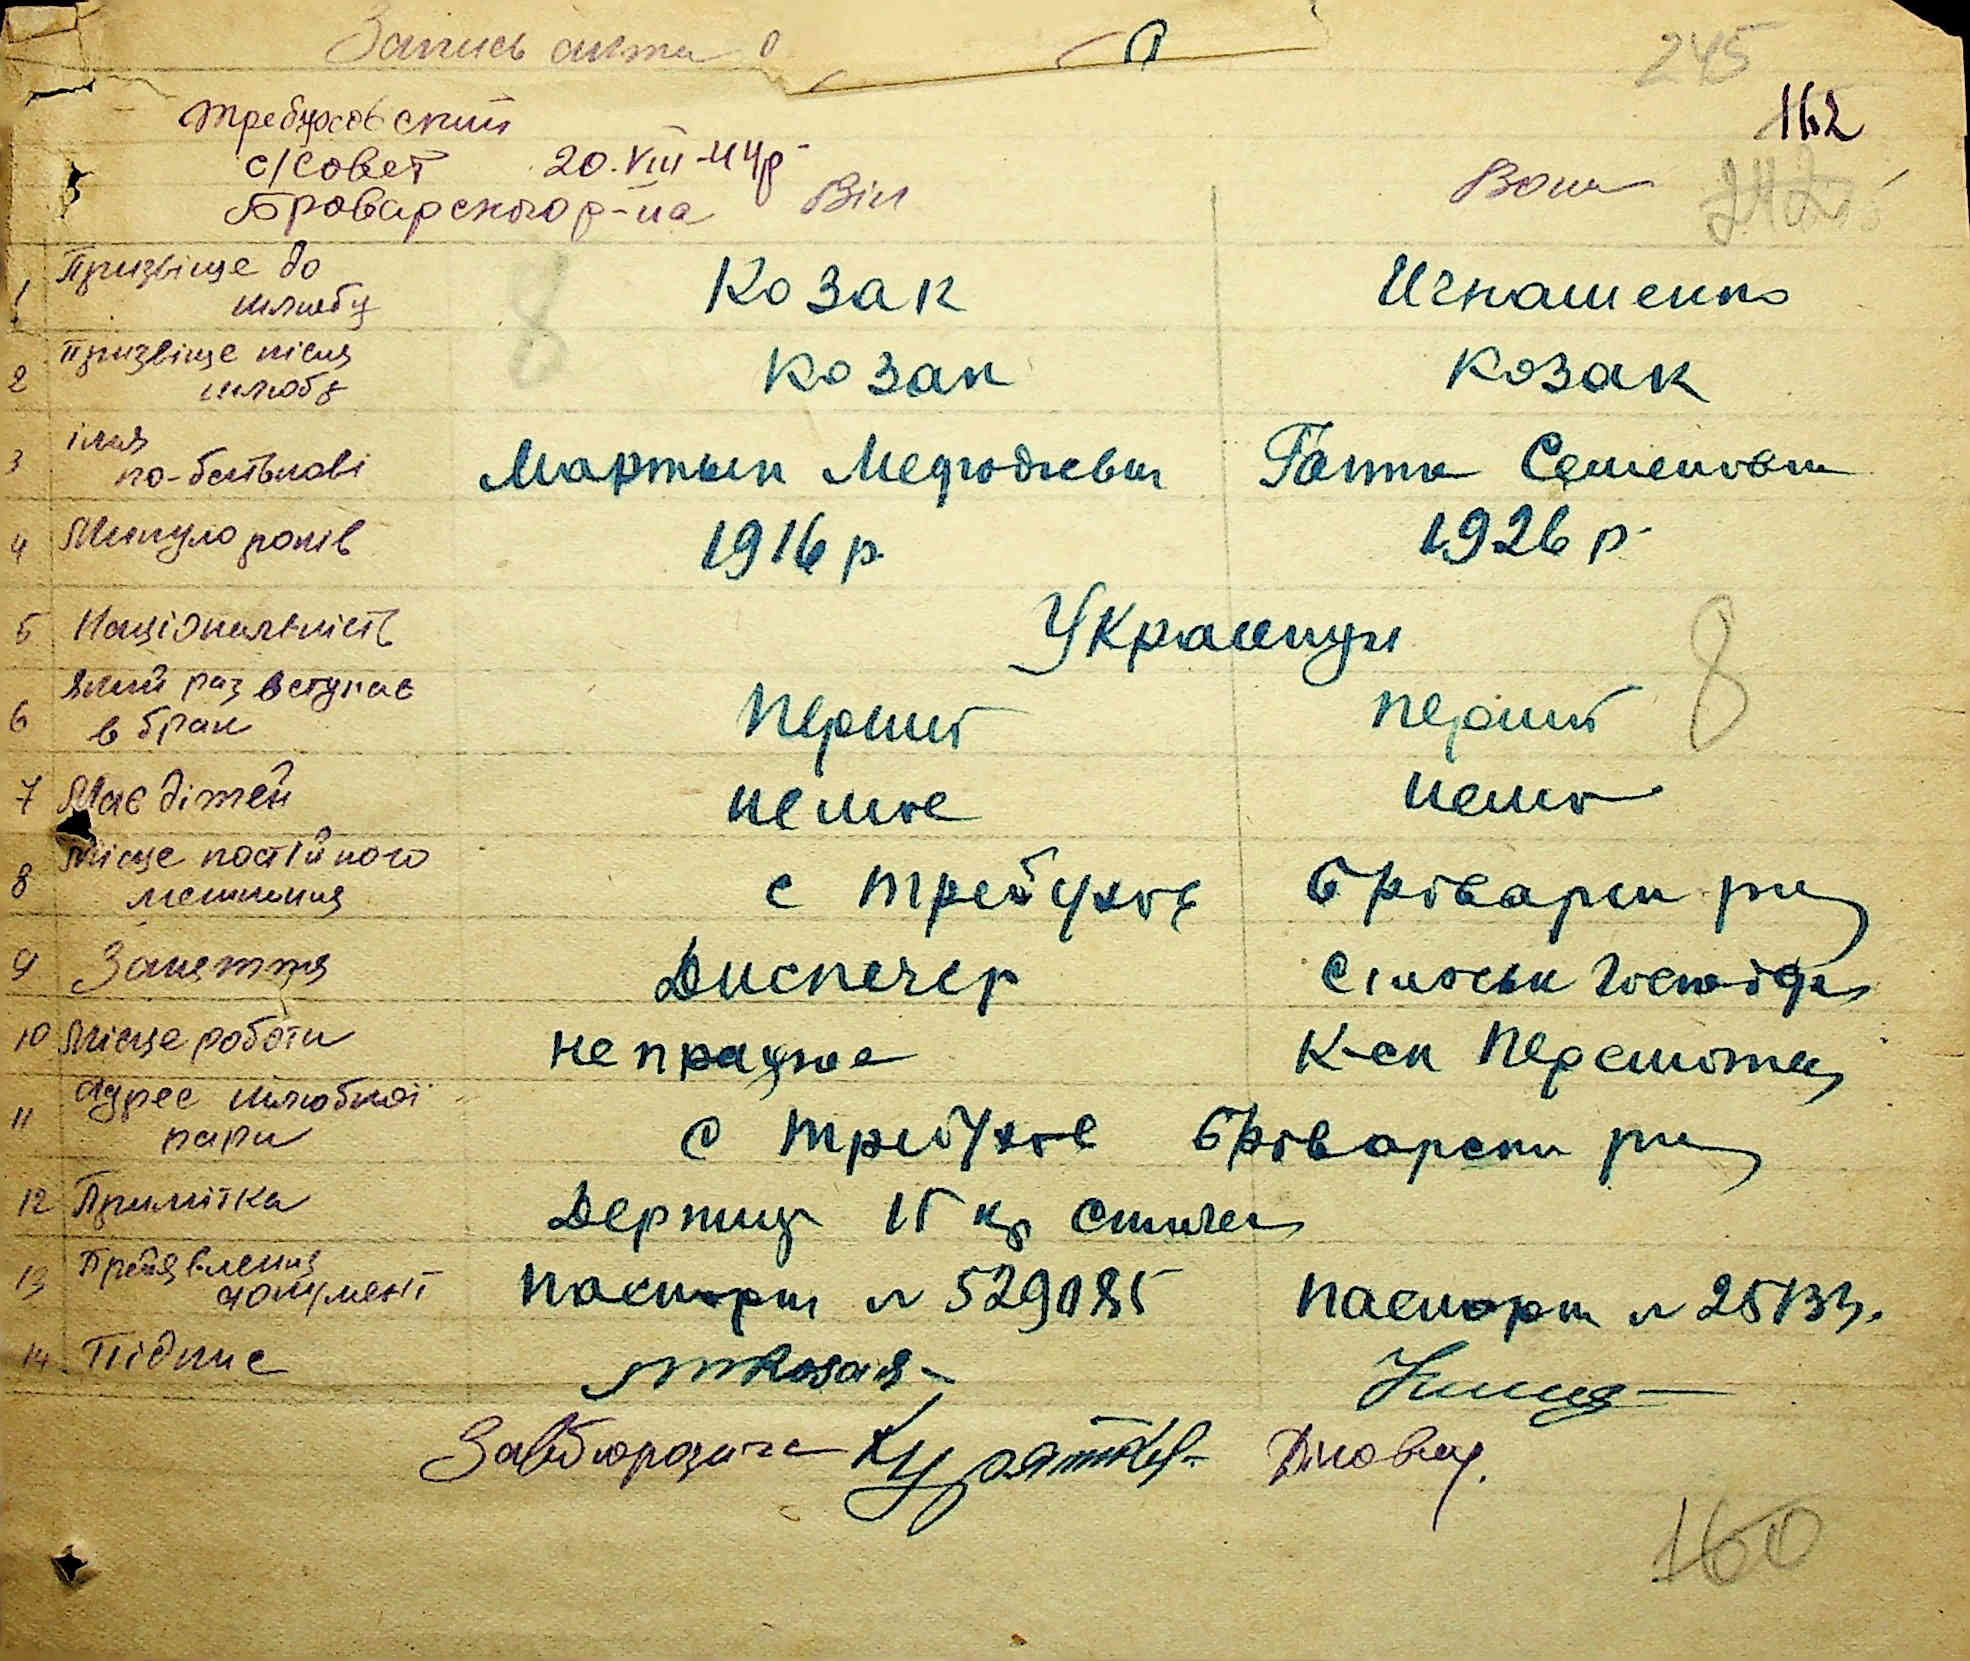 Запись акта о
245
162
Требуховский
с/совет 20.VIII-44р
Броварского р-на Він Вона
242
1 Прізвіще до шлюбу Козак Игнашенко
8
2 Прізвіще після шлюбу Козак Козак
3 імя по-батькові Мартын Мефодиевич Ганна Семеновна
4 Минуло років 1916 р. 1926 р.
5 Національність Украинци
6 Який раз вступає в брак Перший перший
8
7 Має дітей немає нема
8 Місце постійного мешкання с Требухов Броварск р-ну
9 Заняття Диспечер Сільськ господ
10 Місце роботи не працює К-сп Перемога
11 Адрес шлюбної пари с Требухов Броварски р-ну
12 Примітка 15 кр
13 Прейявлення документ Паспорт № 529085 Паспорт №
14 Підпис МКозак
Завбюрозагс Діловод.
160